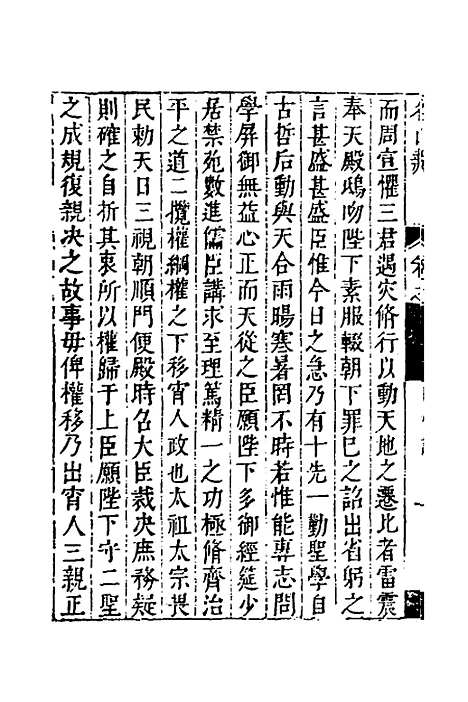 而周宣懼三君遇灾脩行以動天地之憑比者雷震
奉天殿鴟吻陛下素服輟朝下罪已之詔出省躬之
言甚盛甚盛臣惟今日之急乃有十先一勤聖學自
古哲后動與天合雨暘寒暑罔不時若惟能專志問
學屏御無益心正而天從之臣願陛下多御經筵少
居禁苑數進儒臣講求至理篤精一之功極脩齊治
平之道二攬權綱權之下移宵人政也太祖太宗畏
民勅天日三視朝順門便殿時名大臣裁决庶務疑
則確之自折其衷所以權歸于上臣願陛下守二聖
之成規復親决之故事毋俾權移乃出宵人三親正